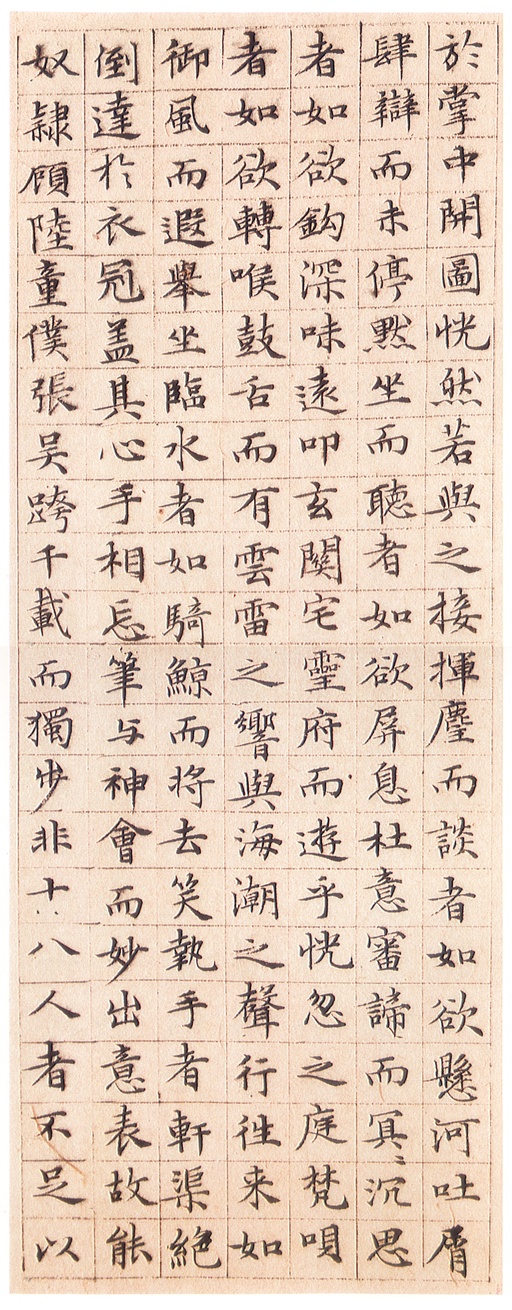 於掌中開圖恍然若與之接揮麈而談者如欲懸河吐屑
肆辯而未停默坐而聽者如欲屏息杜意審諦而冥〻沉思
者如欲鈎深味遠叩玄關宅靈府而遊乎恍忽之庭梵唄
者如欲轉喉鼓舌而有雲雷之響與海潮之聲行往来如
御風而遐舉坐臨水者如騎鯨而将去笑執手者軒渠絕
倒達於衣冠盖其心手相忘筆与神會而妙出意表故能
奴隸顧陸童僕張吴跨千載而獨步非十八人者不足以